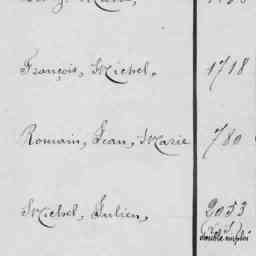 François, Michel. 1718
Romain, Jean, Marie 780
Michel, Julien, 2053
double emploi